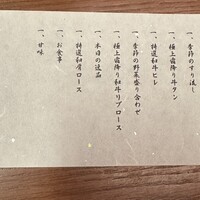 一、季節のすり流し
一、極上霜降り牛タン
一、特選和牛ヒレ
一、季節の野菜盛り合わせ
一、極上霜降り和牛リブロース
一、本日の逸品
一、特選和肩ロース
一、お食事
一、甘味